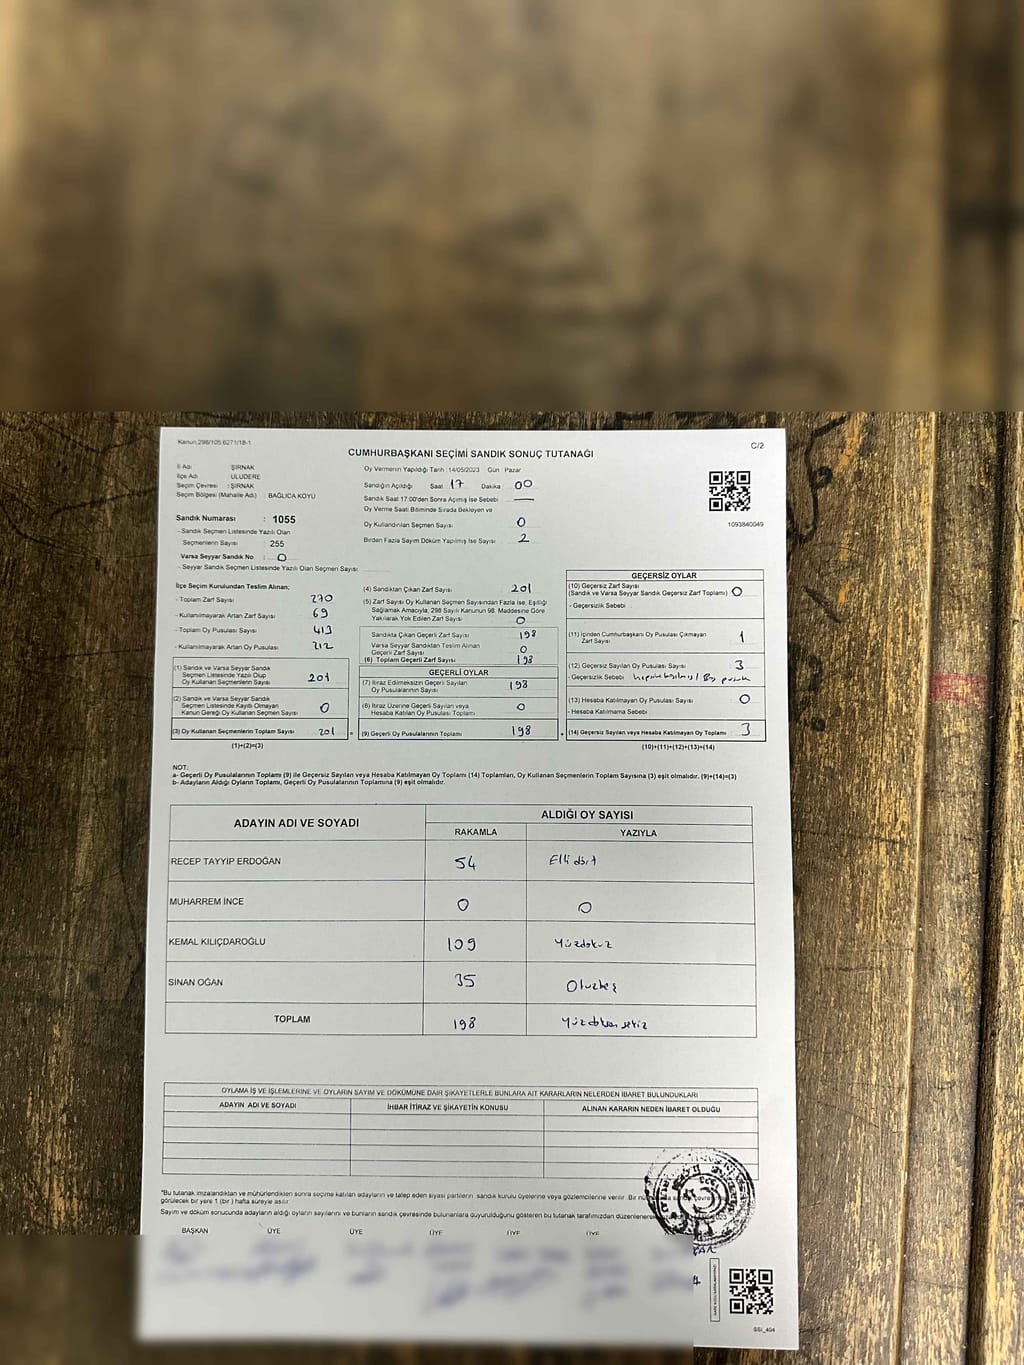 Kanun:298/105;6271/18-1
C/2
CUMHURBAŞKANI SEÇİMİ SANDIK SONUÇ TUTANAĞI
İl Adı : ŞIRNAK
İlçe Adı : ULUDERE
Seçim Çevresi : ŞIRNAK
Seçim Bölgesi (Mahalle Adı) BAĞLICA KÖYÜ
Sandık Numarası : 1055
- Sandık Seçmen Listesinde Yazılı Olan
Seçmenlerin Sayısı : 255
Varsa Seyyar Sandık No : 0
- Seyyar Sandık Seçmen Listesinde Yazılı Olan Seçmen Sayısı :
Oy Vermenin Yapıldığı Tarih :14/05/2023 Gün : Pazar
Sandığın Açıldığı Saat 17 Dakika 00
Sandık Saat 17:00'den Sonra Açılmış İse Sebebi —
Oy Verme Saati Bitiminde Sırada Bekleyen ve
Oy Kullandırılan Seçmen Sayısı 0
Birden Fazla Sayım Döküm Yapılmış İse Sayısı 2
1093840049
İlçe Seçim Kurulundan Teslim Alınan;
- Toplam Zarf Sayısı 270
- Kullanılmayarak Artan Zarf Sayısı 69
- Toplam Oy Pusulası Sayısı 413
- Kullanılmayarak Artan Oy Pusulası 212
(1) Sandık ve Varsa Seyyar Sandık
Seçmen Listesinde Yazılı Olup
Oy Kullanan Seçmenlerin Sayısı 201
(2) Sandık ve Varsa Seyyar Sandık
Seçmen Listesinde Kayıtlı Olmayan
Kanun Gereği Oy Kullanan Seçmen Sayısı 0
(3) Oy Kullanan Seçmenlerin Toplam Sayısı 201 =
(1)+(2)=(3)
(4) Sandıktan Çıkan Zarf Sayısı 201
(5) Zarf Sayısı Oy Kullanan Seçmen Sayısından Fazla İse, Eşitliği
Sağlamak Amacıyla; 298 Sayılı Kanunun 98. Maddesine Göre
Yakılarak Yok Edilen Zarf Sayısı 0
Sandıkta Çıkan Geçerli Zarf Sayısı 198
Varsa Seyyar Sandıktan Teslim Alınan
Geçerli Zarf Sayısı 0
(6) Toplam Geçerli Zarf Sayısı 198
GEÇERLİ OYLAR
(7) İtiraz Edilmeksizin Geçerli Sayılan
Oy Pusulalarının Sayısı 198
(8) İtiraz Üzerine Geçerli Sayılan veya
Hesaba Katılan Oy Pusulası Toplamı 0
(9) Geçerli Oy Pusulalarının Toplamı 198 +
GEÇERSİZ OYLAR
(10) Geçersiz Zarf Sayısı
(Sandık ve Varsa Seyyar Sandık Geçersiz Zarf Toplamı) 0
- Geçersizlik Sebebi :
(11) İçinden Cumhurbaşkanı Oy Pusulası Çıkmayan
Zarf Sayısı 1
(12) Geçersiz Sayılan Oy Pusulası Sayısı 3
- Geçersizlik Sebebi
(13) Hesaba Katılmayan Oy Pusulası Sayısı 0
- Hesaba Katılmama Sebebi
(14) Geçersiz Sayılan veya Hesaba Katılmayan Oy Toplamı 3
(10)+(11)+(12)+(13)=(14)
NOT:
a- Geçerli Oy Pusulalarının Toplamı (9) ile Geçersiz Sayılan veya Hesaba Katılmayan Oy Toplamı (14) Toplamları, Oy Kullanan Seçmenlerin Toplam Sayısına (3) eşit olmalıdır. (9)+(14)=(3)
b- Adayların Aldığı Oyların Toplamı, Geçerli Oy Pusulalarının Toplamına (9) eşit olmalıdır.
ADAYIN ADI VE SOYADI
ALDIĞI OY SAYISI
RAKAMLA YAZIYLA
RECEP TAYYIP ERDOĞAN 54 Elli dört
MUHARREM İNCE 0 0
KEMAL KILIÇDAROĞLU 109 Yüzdokuz
SİNAN OĞAN 35 Otuzbeş
TOPLAM 198 Yüzdoksan sekiz
OYLAMA İŞ VE İŞLEMLERİNE VE OYLARIN SAYIM VE DÖKÜMÜNE DAİR ŞİKAYETLERLE BUNLARA AİT KARARLARIN NELERDEN İBARET BULUNDUKLARI
ADAYIN ADI VE SOYADI İHBAR İTİRAZ VE ŞİKAYETİN KONUSU ALINAN KARARIN NEDEN İBARET OLDUĞU
*Bu tutanak imzalandıktan ve mühürlendikten sonra seçime katılan adayların ve talep eden siyasi partilerin sandık kurulu üyelerine veya gözlemcilerine verilir. Bir
görülecek bir yere 1 (bir) hafta süreyle asılır.
Sayım ve döküm sonucunda adayların aldığı oyların sayılarını ve bunların sandık çevresinde bulunanlara duyurulduğunu gösteren bu tutanak tarafımızdan
BAŞKAN ÜYE ÜYE ÜYE ÜYE ÜYE
SSI_404